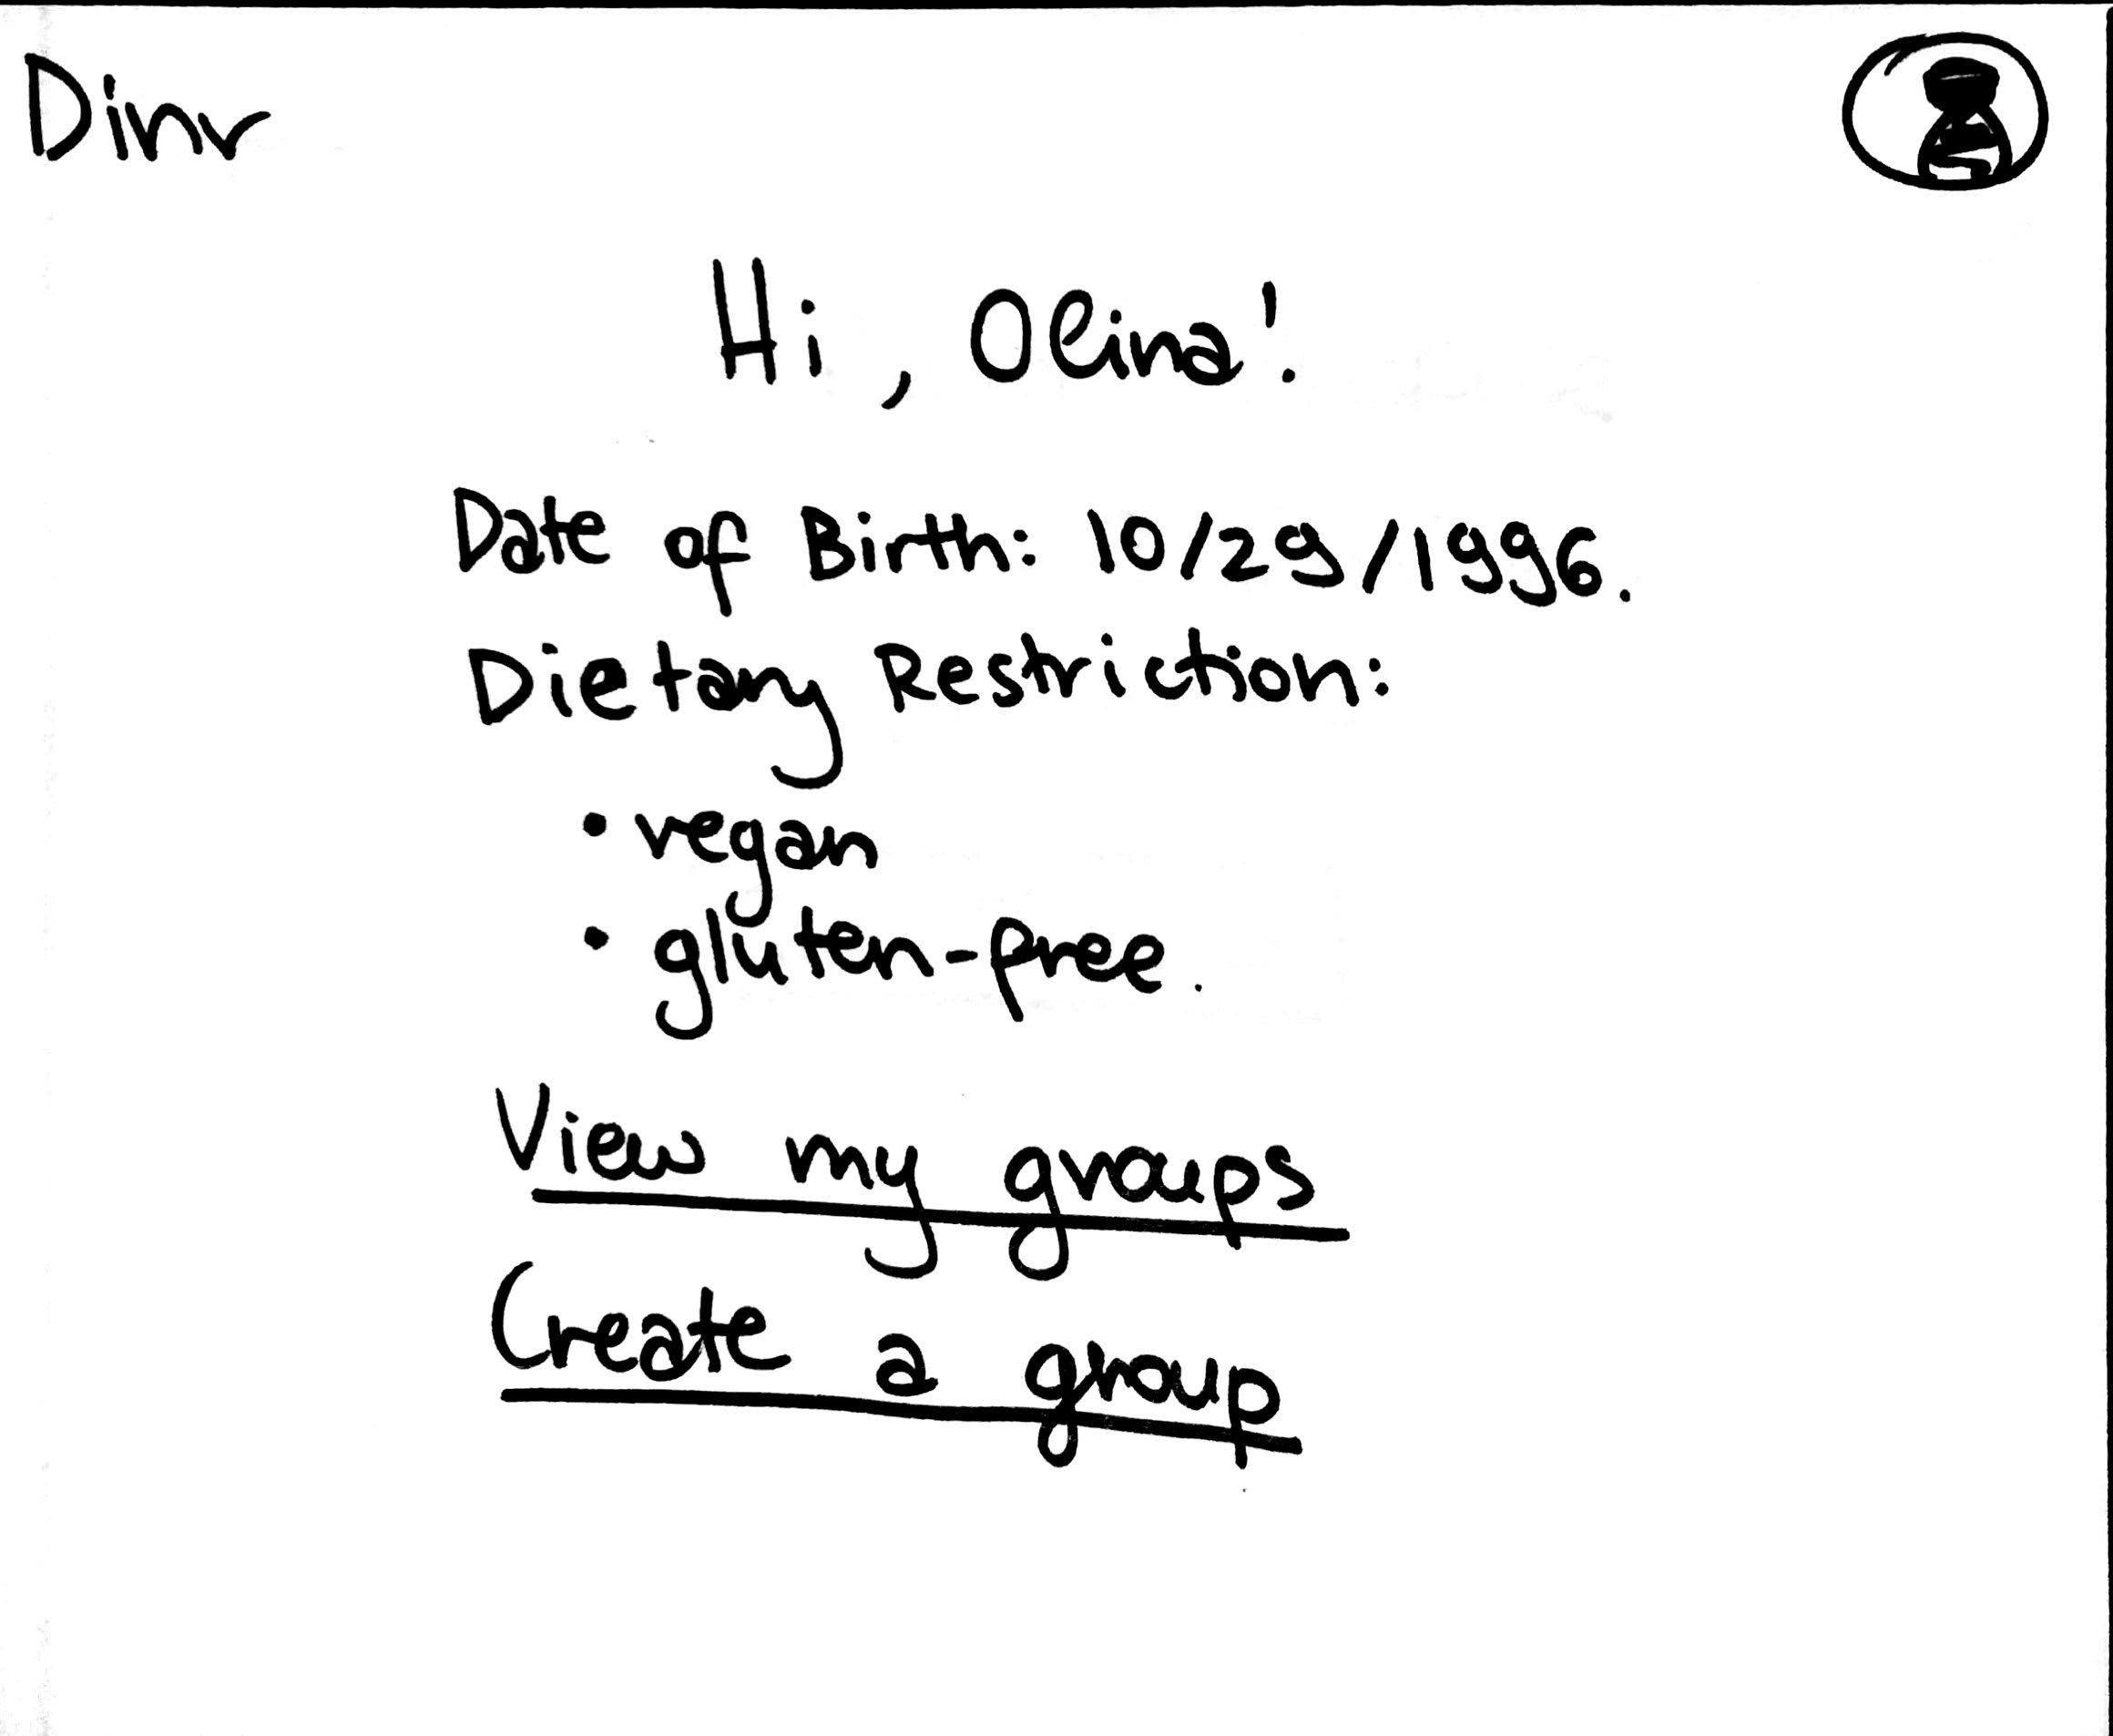 Dinr
Hi, Olina!
Date of Birth: 10/29/1996.
Dietary Restriction:
• vegan
• gluten-free.
View my groups
Create a group